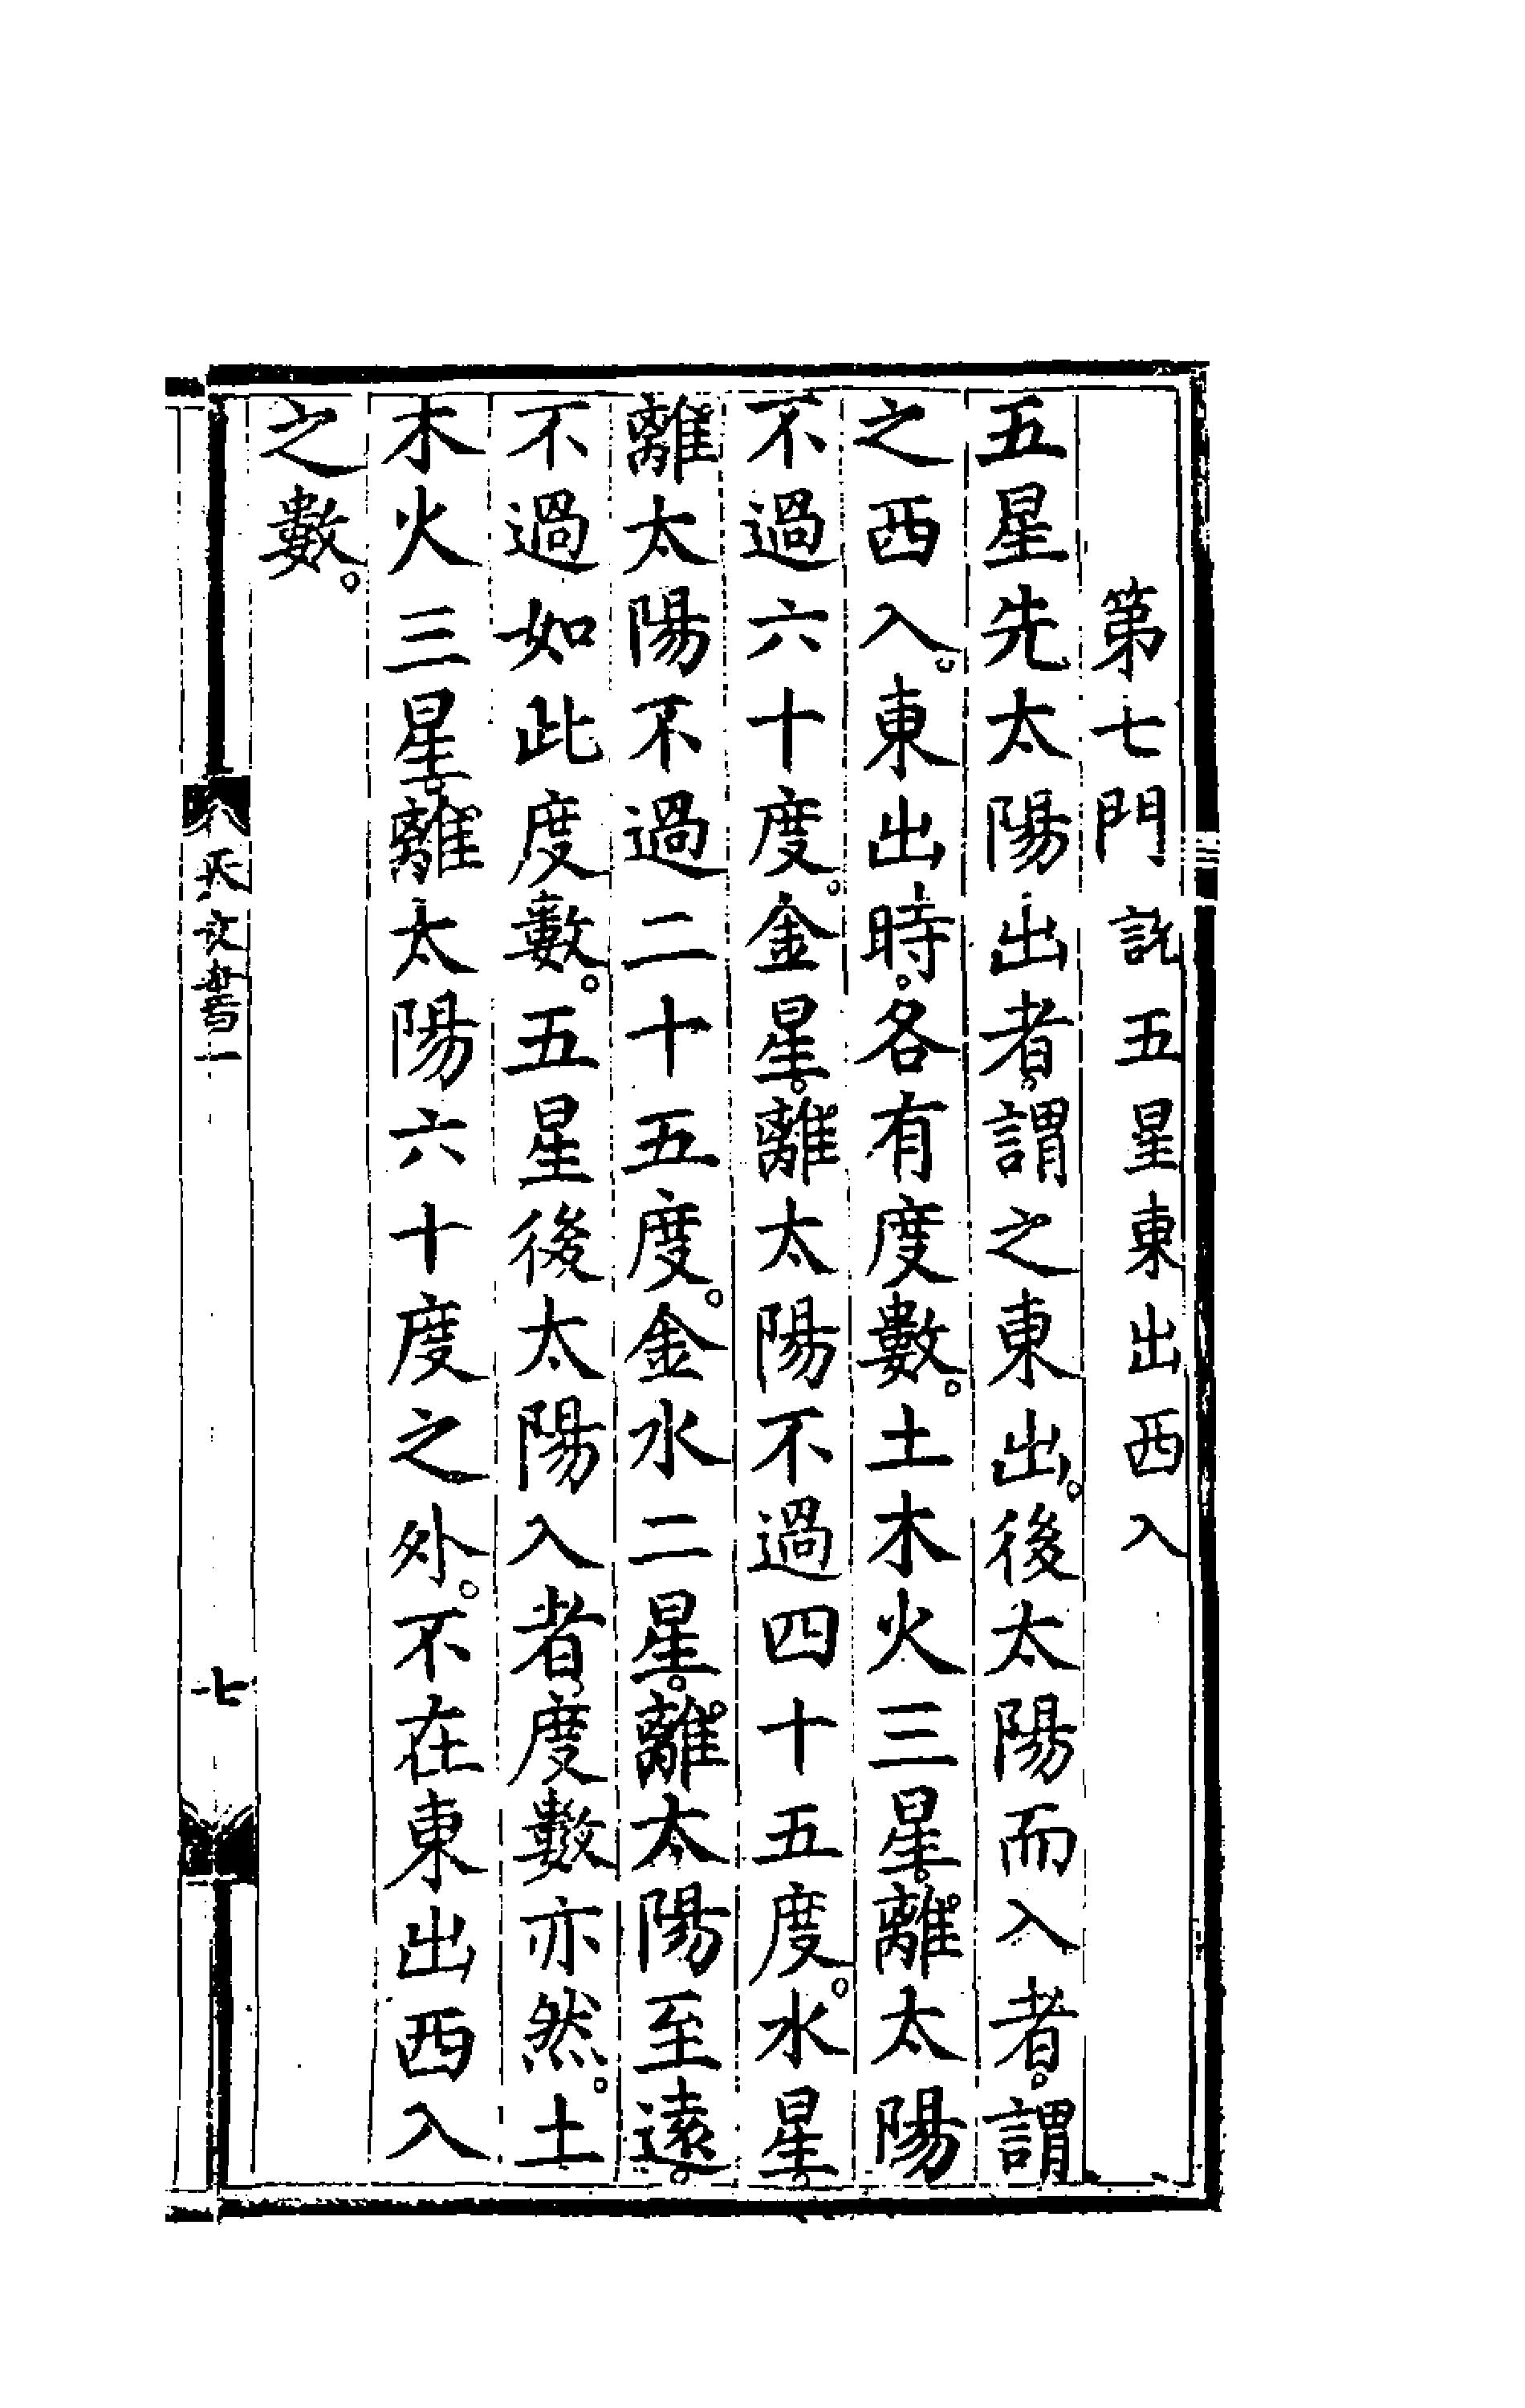 第七門 說五星東出西入
五星先太陽出者。謂之東出。後太陽而入者。謂
之西入。東出時。各有度數。土木火三星。離太陽
不過六十度。金星。離太陽不過四十五度。水星。
離太陽不過二十五度。金水二星。離太陽至遠。
不過如此度數。五星後太陽入者。度數亦然。土
木火三星。離太陽六十度之外。不在東出西入
之數。
天文書一
七